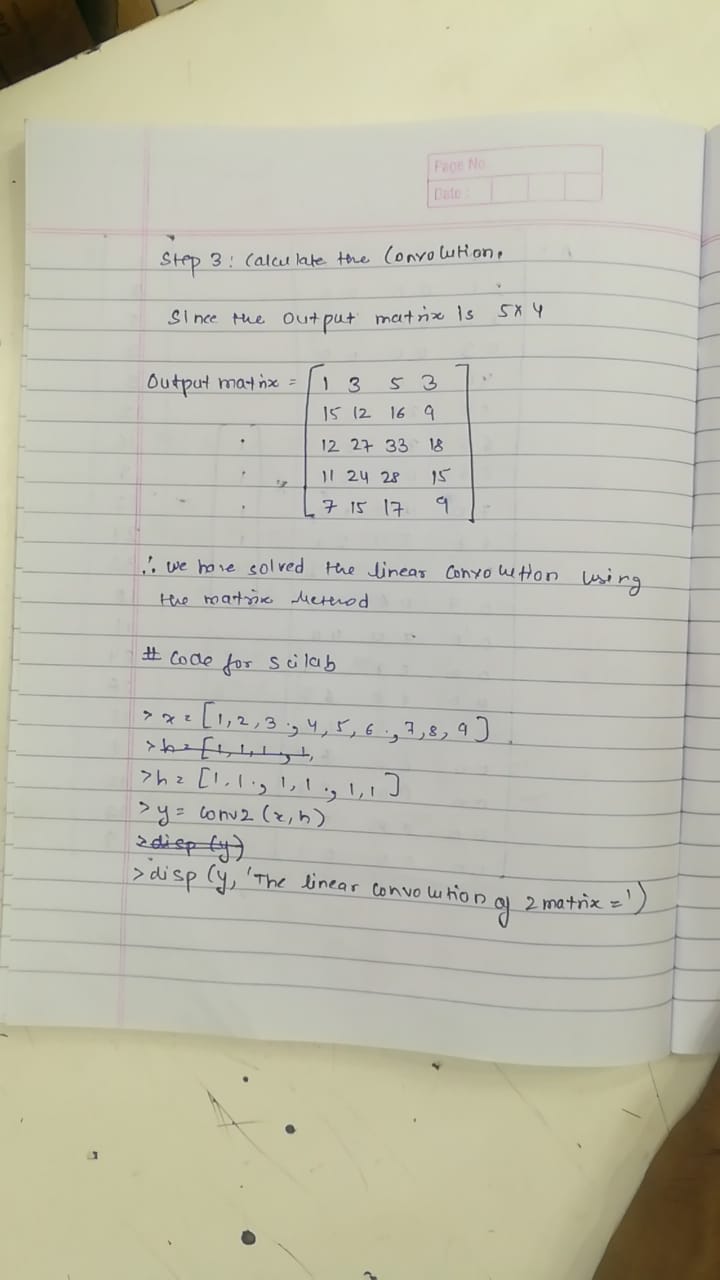 Page No.
Date :
Step 3: Calculate the Convolution.
Since the output matrix is 5x4
Output matrix = [ 1 3 5 3 ]
15 12 16 9
12 27 33 18
11 24 28 15
7 15 17 9
∴ we have solved the linear convolution using
the matrix Method
# Code for scilab
> x = [1,2,3 ; 4,5,6 ; 7,8,9]
> h = [1,1,1,1,
> h = [1,1 ; 1,1 ; 1,1]
> y = conv2 (x,h)
> disp (y)
> disp (y, 'The linear convolution of 2 matrix =')